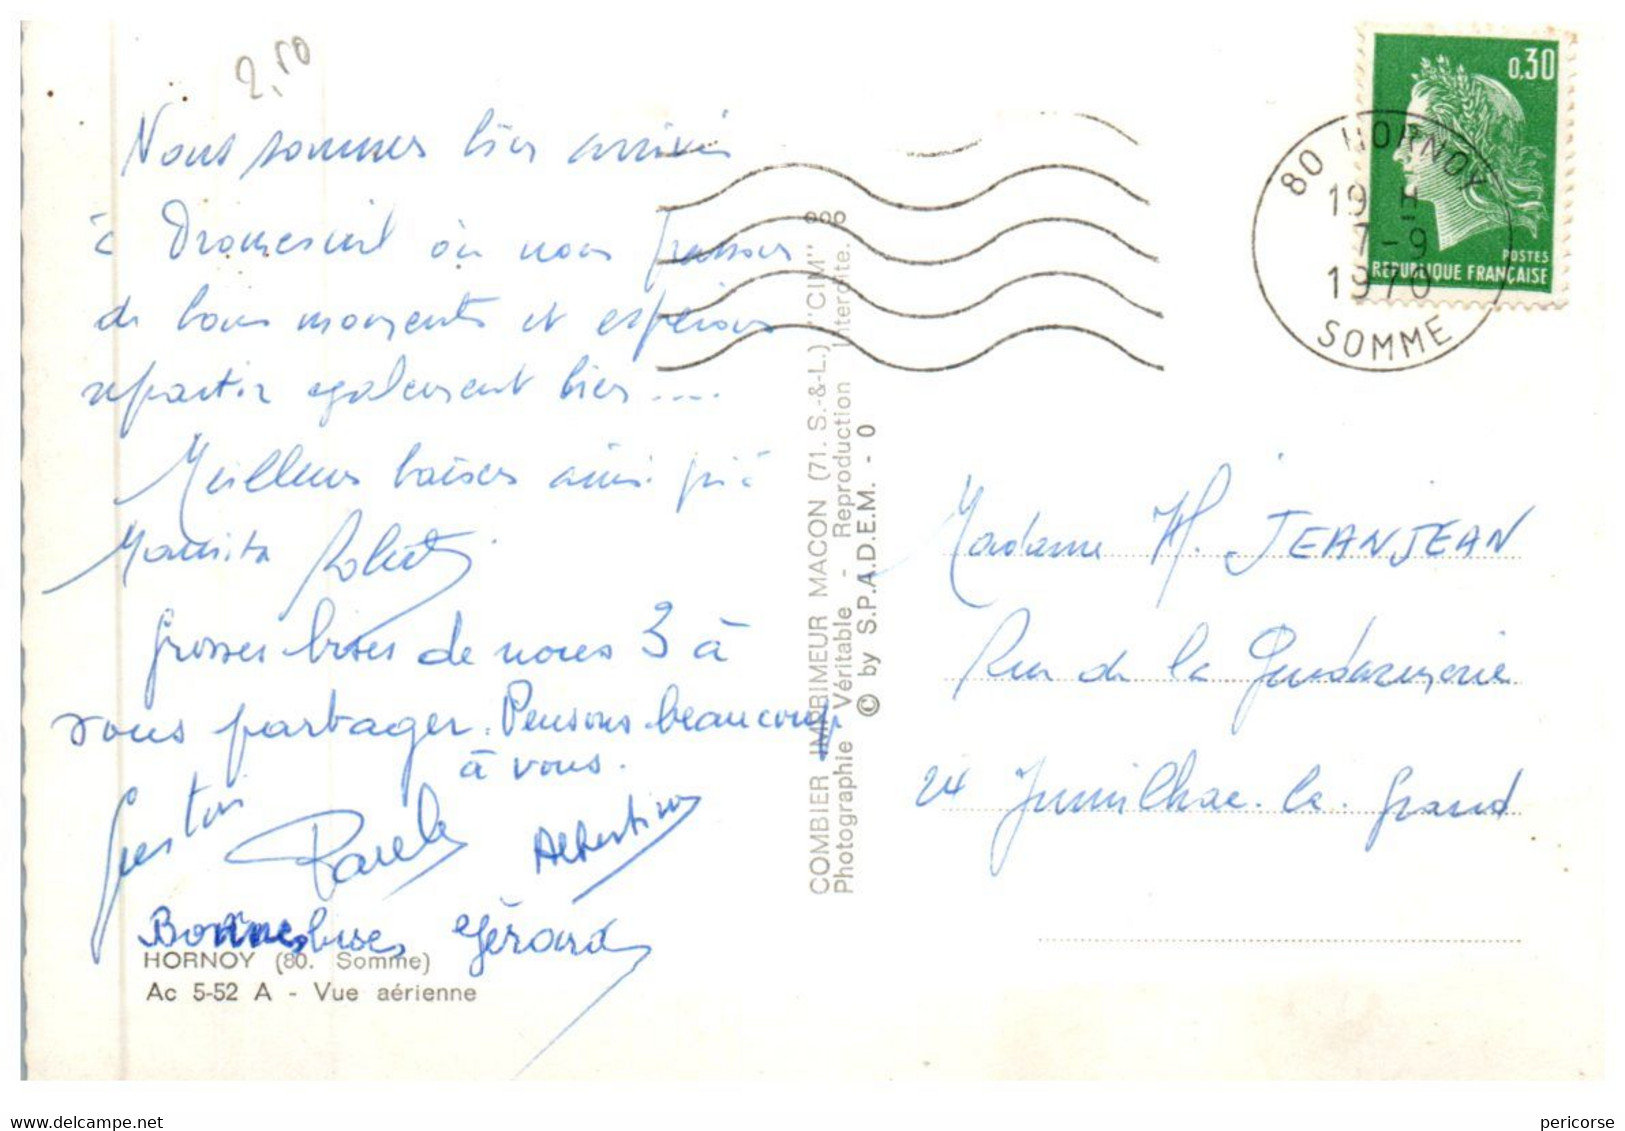 2,50
Nous sommes bien arrivés
à Dromesnil où nous passons
de bons moments et espérons
repartir également bien ....
Meilleurs baisers ainsi
Robert
Grosses bises de nous 3 à
vous partager. Pensons beaucoup
à vous.
Gaston Albertine
Bonnes bises Gérard
HORNOY (80. Somme)
Ac 5-52 A - Vue aérienne
COMBIER IMPRIMEUR MACON (71. S.-&-L.) "CIM"
Photographie Véritable - Reproduction Interdite.
© by S.P.A.D.E.M. - 0
0,30
POSTES
REPUBLIQUE FRANÇAISE
80 HORNOY
19 H
7-9
1970
SOMME
Madame H. JEANJEAN
Rue de la Gendarmerie
24 Jumilhac-le-Grand
www.delcampe.net
pericorse